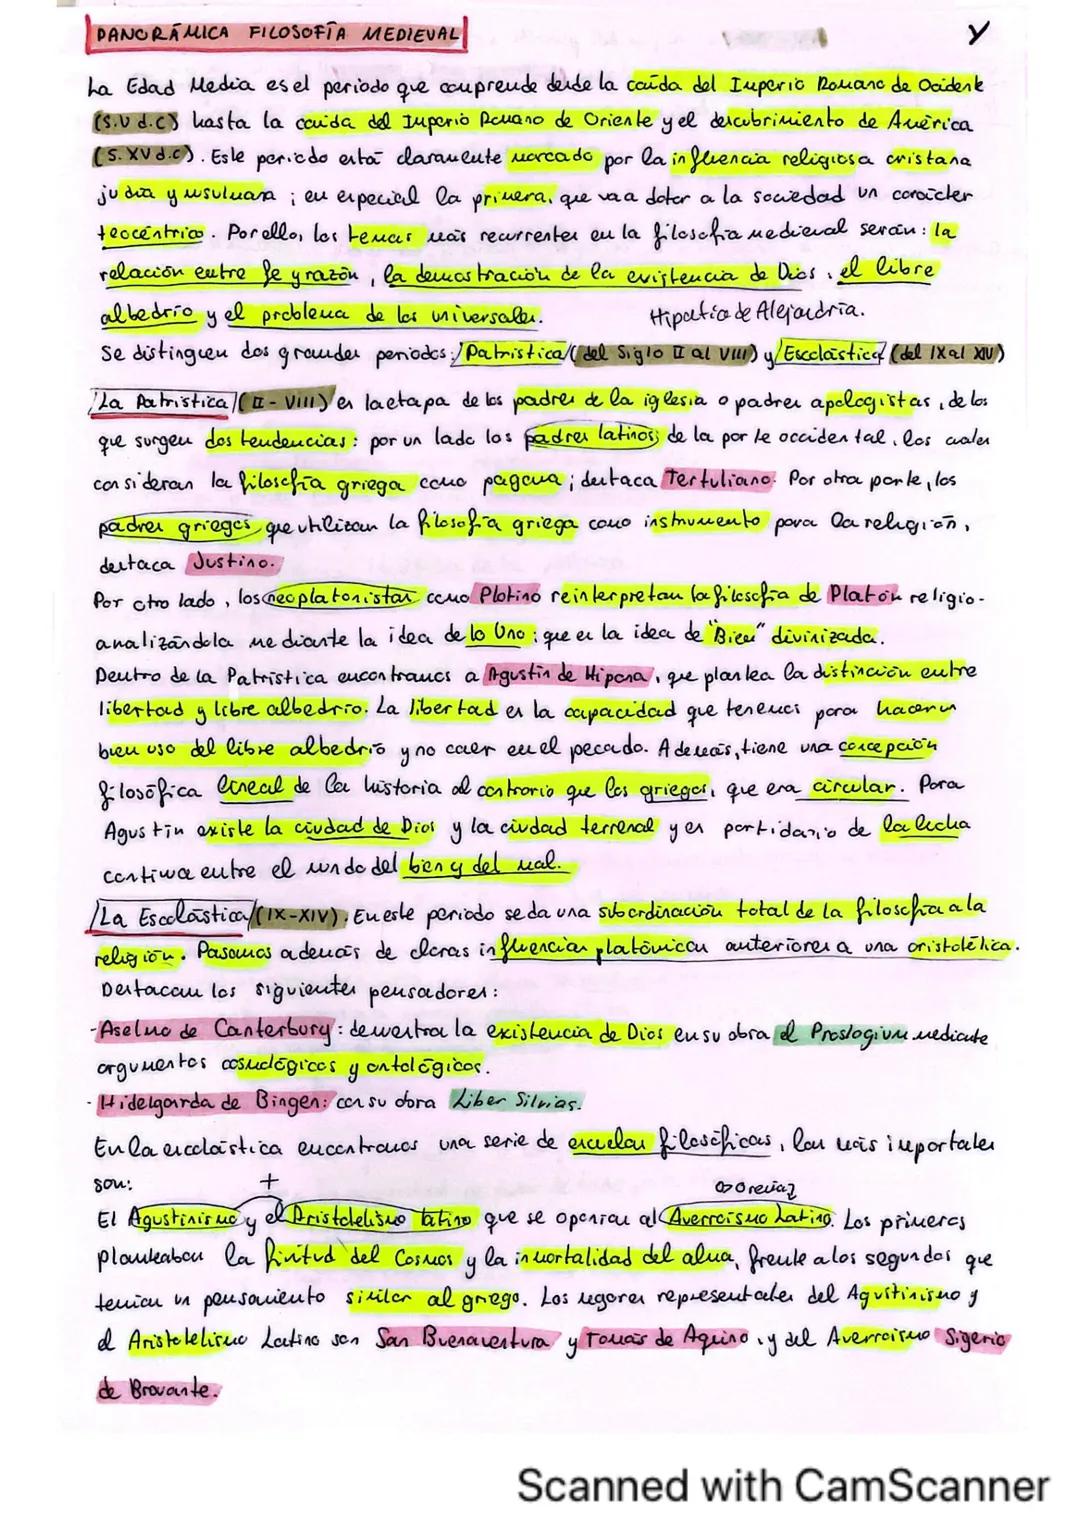 PANORÁMICA FILOSOFÍA MEDIEVAL
La Edad Media es el periodo que comprende desde la caída del Imperio Romano de Occidente
(S.V d.C) hasta la caida del Imperio Romano de Oriente y el descubrimiento de América
(S. XV d.c). Este periodo está claramente marcado por la influencia religiosa cristiana
judía y musulmana ; en especial la primera, que va a dotar a la sociedad un carácter
teocéntrico. Por ello, los temas más recurrentes en la filosofía medieval serán: la
relación entre fe y razón, la demostración de la existencia de Dios, el libre
albedrío y el problema de los universales. Hipatia de Alejandría.
Se distinguen dos grandes periodos: Patrística (del Siglo II al VIII) y Escolástica (del IX al XIV)
La Patrística (II - VIII) es la etapa de los padres de la iglesia o padres apologistas, de los
que surgen dos tendencias: por un lado los padres latinos, de la parte occidental, los cuales
consideran la filosofía griega como pagana ; destaca Tertuliano. Por otra parte, los
padres griegos que utilizan la filosofía griega como instrumento para la religión,
destaca Justino.
Por otro lado, los neoplatonistas como Plotino reinterpretan la filosofía de Platón religio-
analizándola mediante la idea de lo Uno ; que es la idea de "Bien" divinizada.
Dentro de la Patrística encontramos a Agustín de Hipona, que plantea la distinción entre
libertad y libre albedrío. La libertad es la capacidad que tenemos para hacer un
buen uso del libre albedrío y no caer en el pecado. Además, tiene una concepción
filosófica lineal de la historia al contrario que los griegos, que era circular. Para
Agustín existe la ciudad de Dios y la ciudad terrenal y es partidario de la lucha
continua entre el mundo del bien y del mal.
La Escolástica (IX-XIV). En este periodo se da una subordinación total de la filosofía a la
religión. Pasamos además de claras influencias platónicas anteriores a una aristotélica.
Destacan los siguientes pensadores:
-Aselmo de Canterbury: demuestra la existencia de Dios en su obra el Proslogium mediante
argumentos cosmológicos y ontológicos.
- Hidelgarda de Bingen: con su obra Liber Silvias.
En la escolástica encontramos una serie de escuelas filosóficas, las más importantes
son: +
El Agustinismo y el Aristotelismo latino que se oponían al Averroísmo Latino. Los primeros
planteaban la finitud del Cosmos y la inmortalidad del alma, frente a los segundos que
tenían un pensamiento similar al griego. Los mayores representantes del Agustinismo y
el Aristotelismo Latino son San Buenaventura y Tomás de Aquino, y del Averroísmo Sigerio
de Bravante.
Scanned with CamScanner